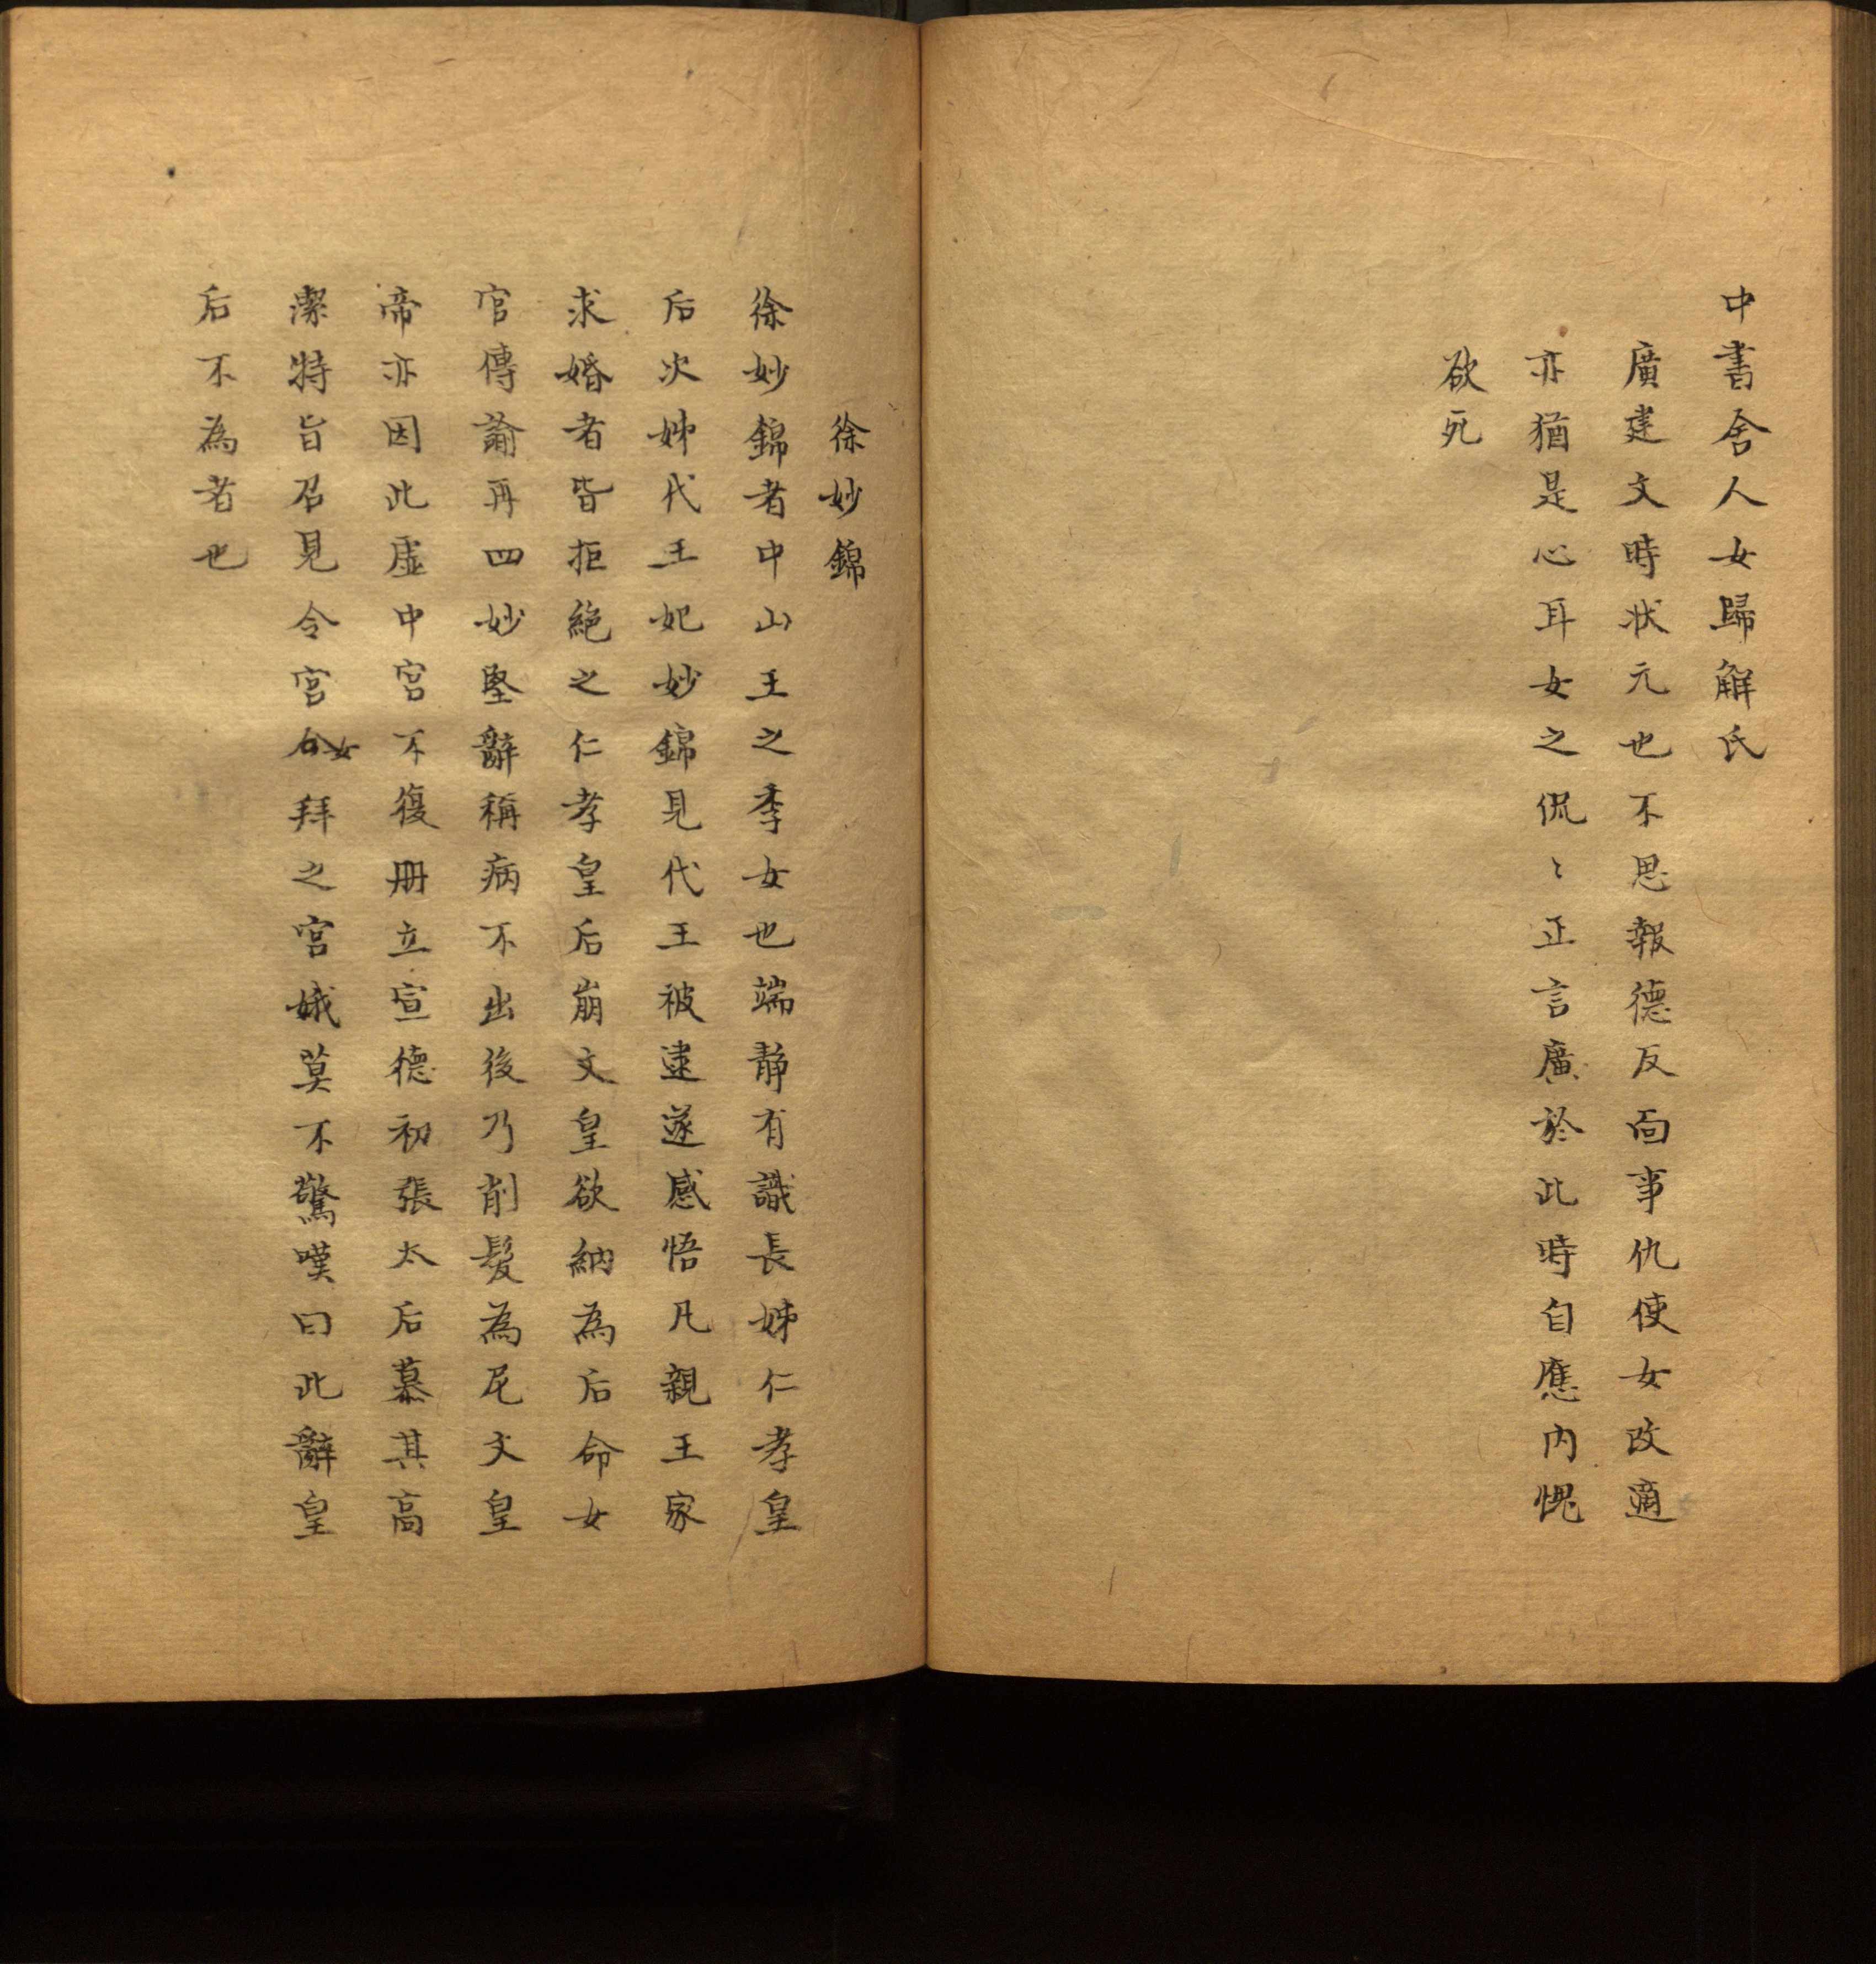 中書舍人女歸解氏
廣建文時状元也不思報德反靣事仇使女改適
亦猶是心耳女之侃〻正言廣於此時自應内愧
欲死
徐妙錦
徐妙錦者中山王之季女也端静有識長姊仁孝皇
后次姊代王妃妙錦見代王被逮遂感悟凡親王家
求婚者皆拒絶之仁孝皇后崩文皇欲納為后命女
官傳諭再四妙堅辭稱病不出後乃削髮為尼文皇
帝亦因此虛中宮不復册立宣德初張太后慕其高
潔特旨召見令宮女拜之宮娥莫不驚嘆曰此辭皇
后不為者也